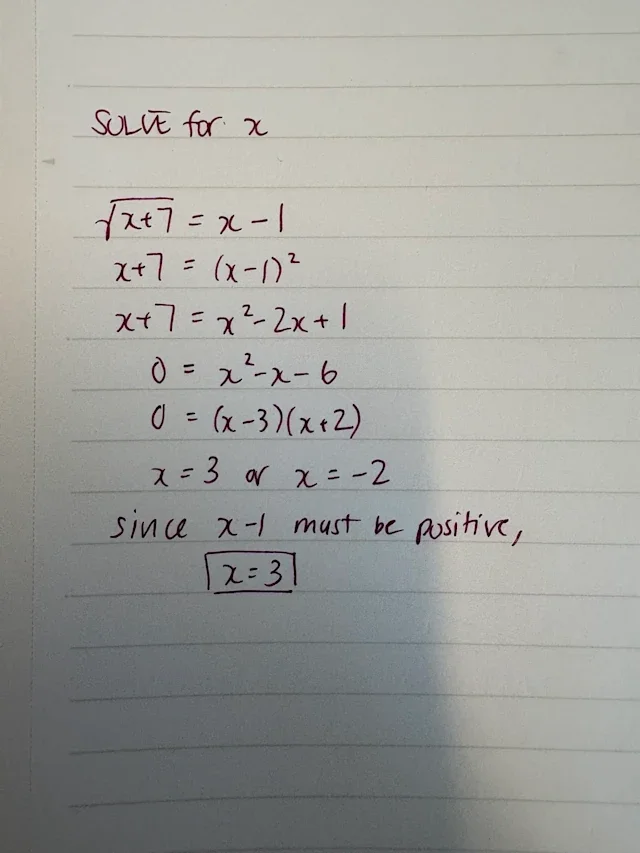 SOLVE for x
√(x+7) = x - 1
x+7 = (x-1)²
x+7 = x²-2x+1
0 = x²-x-6
0 = (x-3)(x+2)
x = 3 or x = -2
since x-1 must be positive,
x=3